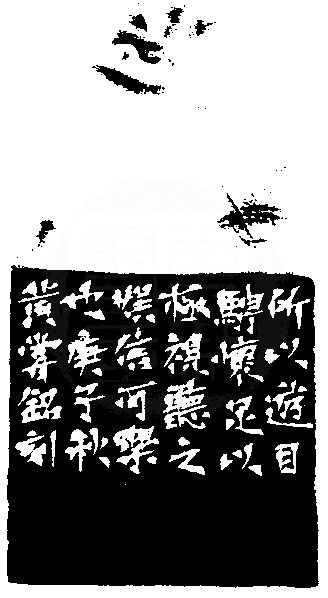 所以遊目
騁懷足以
極視聽之
娛信可樂
也庚子秋
黃嘗銘刻